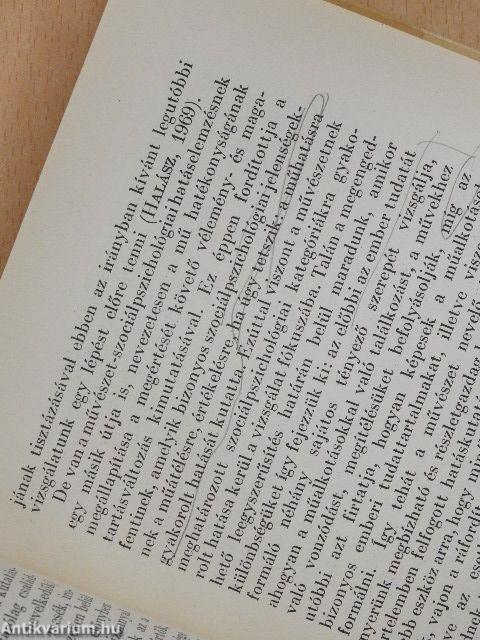 jának tisztázásával ebben az irányban kívánt legutóbbi
vizsgálatunk egy lépést előre tenni (HALÁSZ, 1969).
De van a művészet-szociálpszichológiai hatáselemzésnek
egy másik útja is, nevezetesen a mű hatékonyságának
megállapítása a megértését követő vélemény- és maga-
tartásváltozás kimutatásával. Ez éppen fordítottja a
fentinek, amelyik bizonyos szociálpszichológiai jelenségek-
nek a műátélésre, értékelésre, ha úgy tetszik: a műhatásra
gyakorolt hatását kutatta. Ezúttal viszont a művészetnek
meghatározott szociálpszichológiai kategóriákra gyako-
rolt hatása kerül a vizsgálat fókuszába. Talán a megenged-
hető leegyszerűsítés határán belül maradunk, amikor
különbségüket így fejezzük ki: az előbbi az ember tudatát
formáló néhány sajátos tényező szerepét vizsgálja,
ahogyan a műalkotásokkal való találkozást, a művekhez
való vonzódást, megítélésüket befolyásolják, míg az
utóbbi azt firtatja, hogyan képesek a műalkotások
bizonyos emberi tudattartalmakat, illetve
formálni. Így tehát a művészet nevelő
megbízható és részletgazdag
értelemben felfogott
eszköz arra, hogy
vajon a
Antikvarium.hu